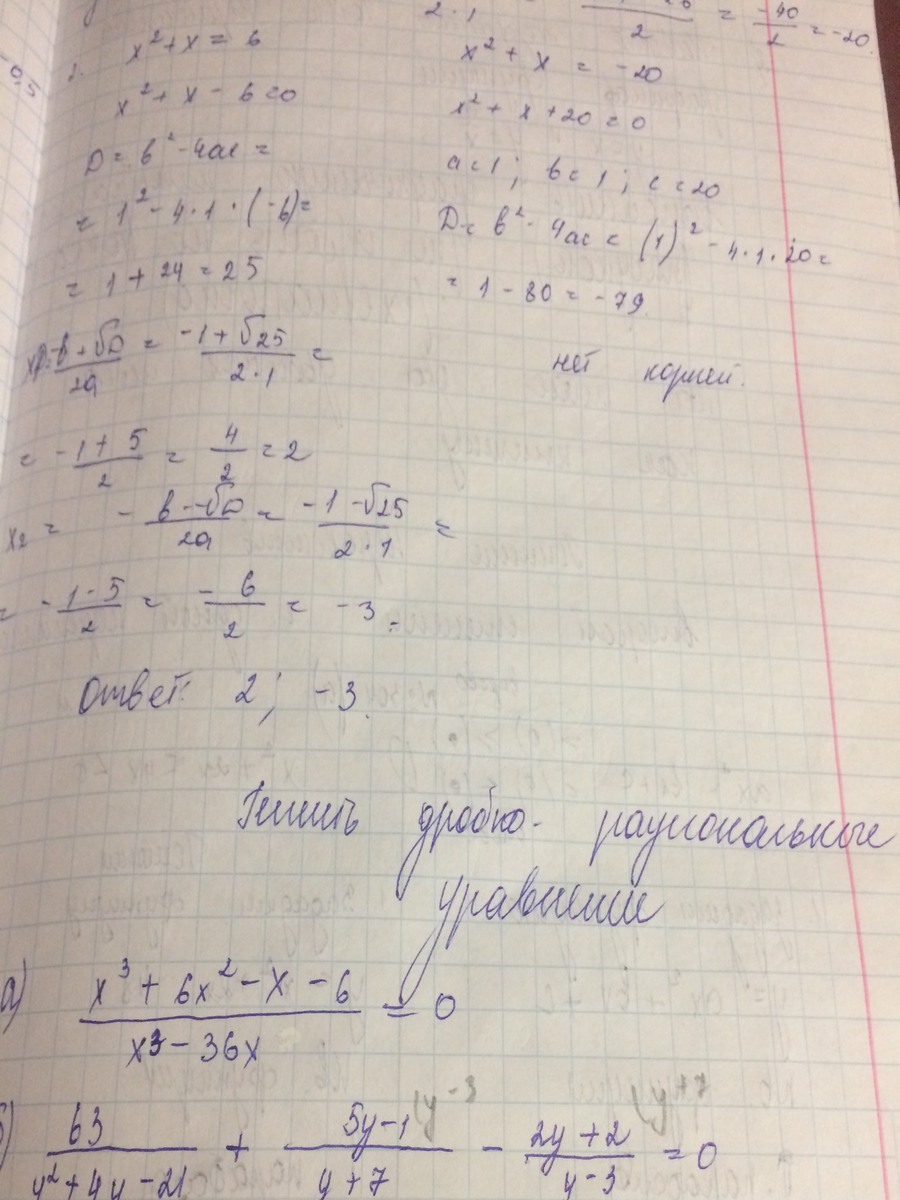 2·1
2
= -40/2 = -20.
2. x² + x = 6
x² + x - 6 = 0
D = b² - 4ac =
= 1² - 4·1·(-6) =
= 1 + 24 = 25
-b + √D / 2a = -1 + √25 / 2·1 =
= -1 + 5 / 2 = 4/2 = 2
x₂ = -b - √D / 2a = -1 - √25 / 2·1 =
= -1 - 5 / 2 = -6/2 = -3.
Ответ: 2; -3.
x² + x = -20
x² + x + 20 = 0
a = 1; b = 1; c = 20
D = b² - 4ac = (1)² - 4·1·20 =
= 1 - 80 = -79.
нет корней.
дробно-рациональные
уравнение
а) x³ + 6x² - x - 6 / x³ - 36x = 0
y-3
y+7
б) 63 / y² + 4y - 21 + 5y - 1 / y + 7 - 2y + 2 / y - 3 = 0